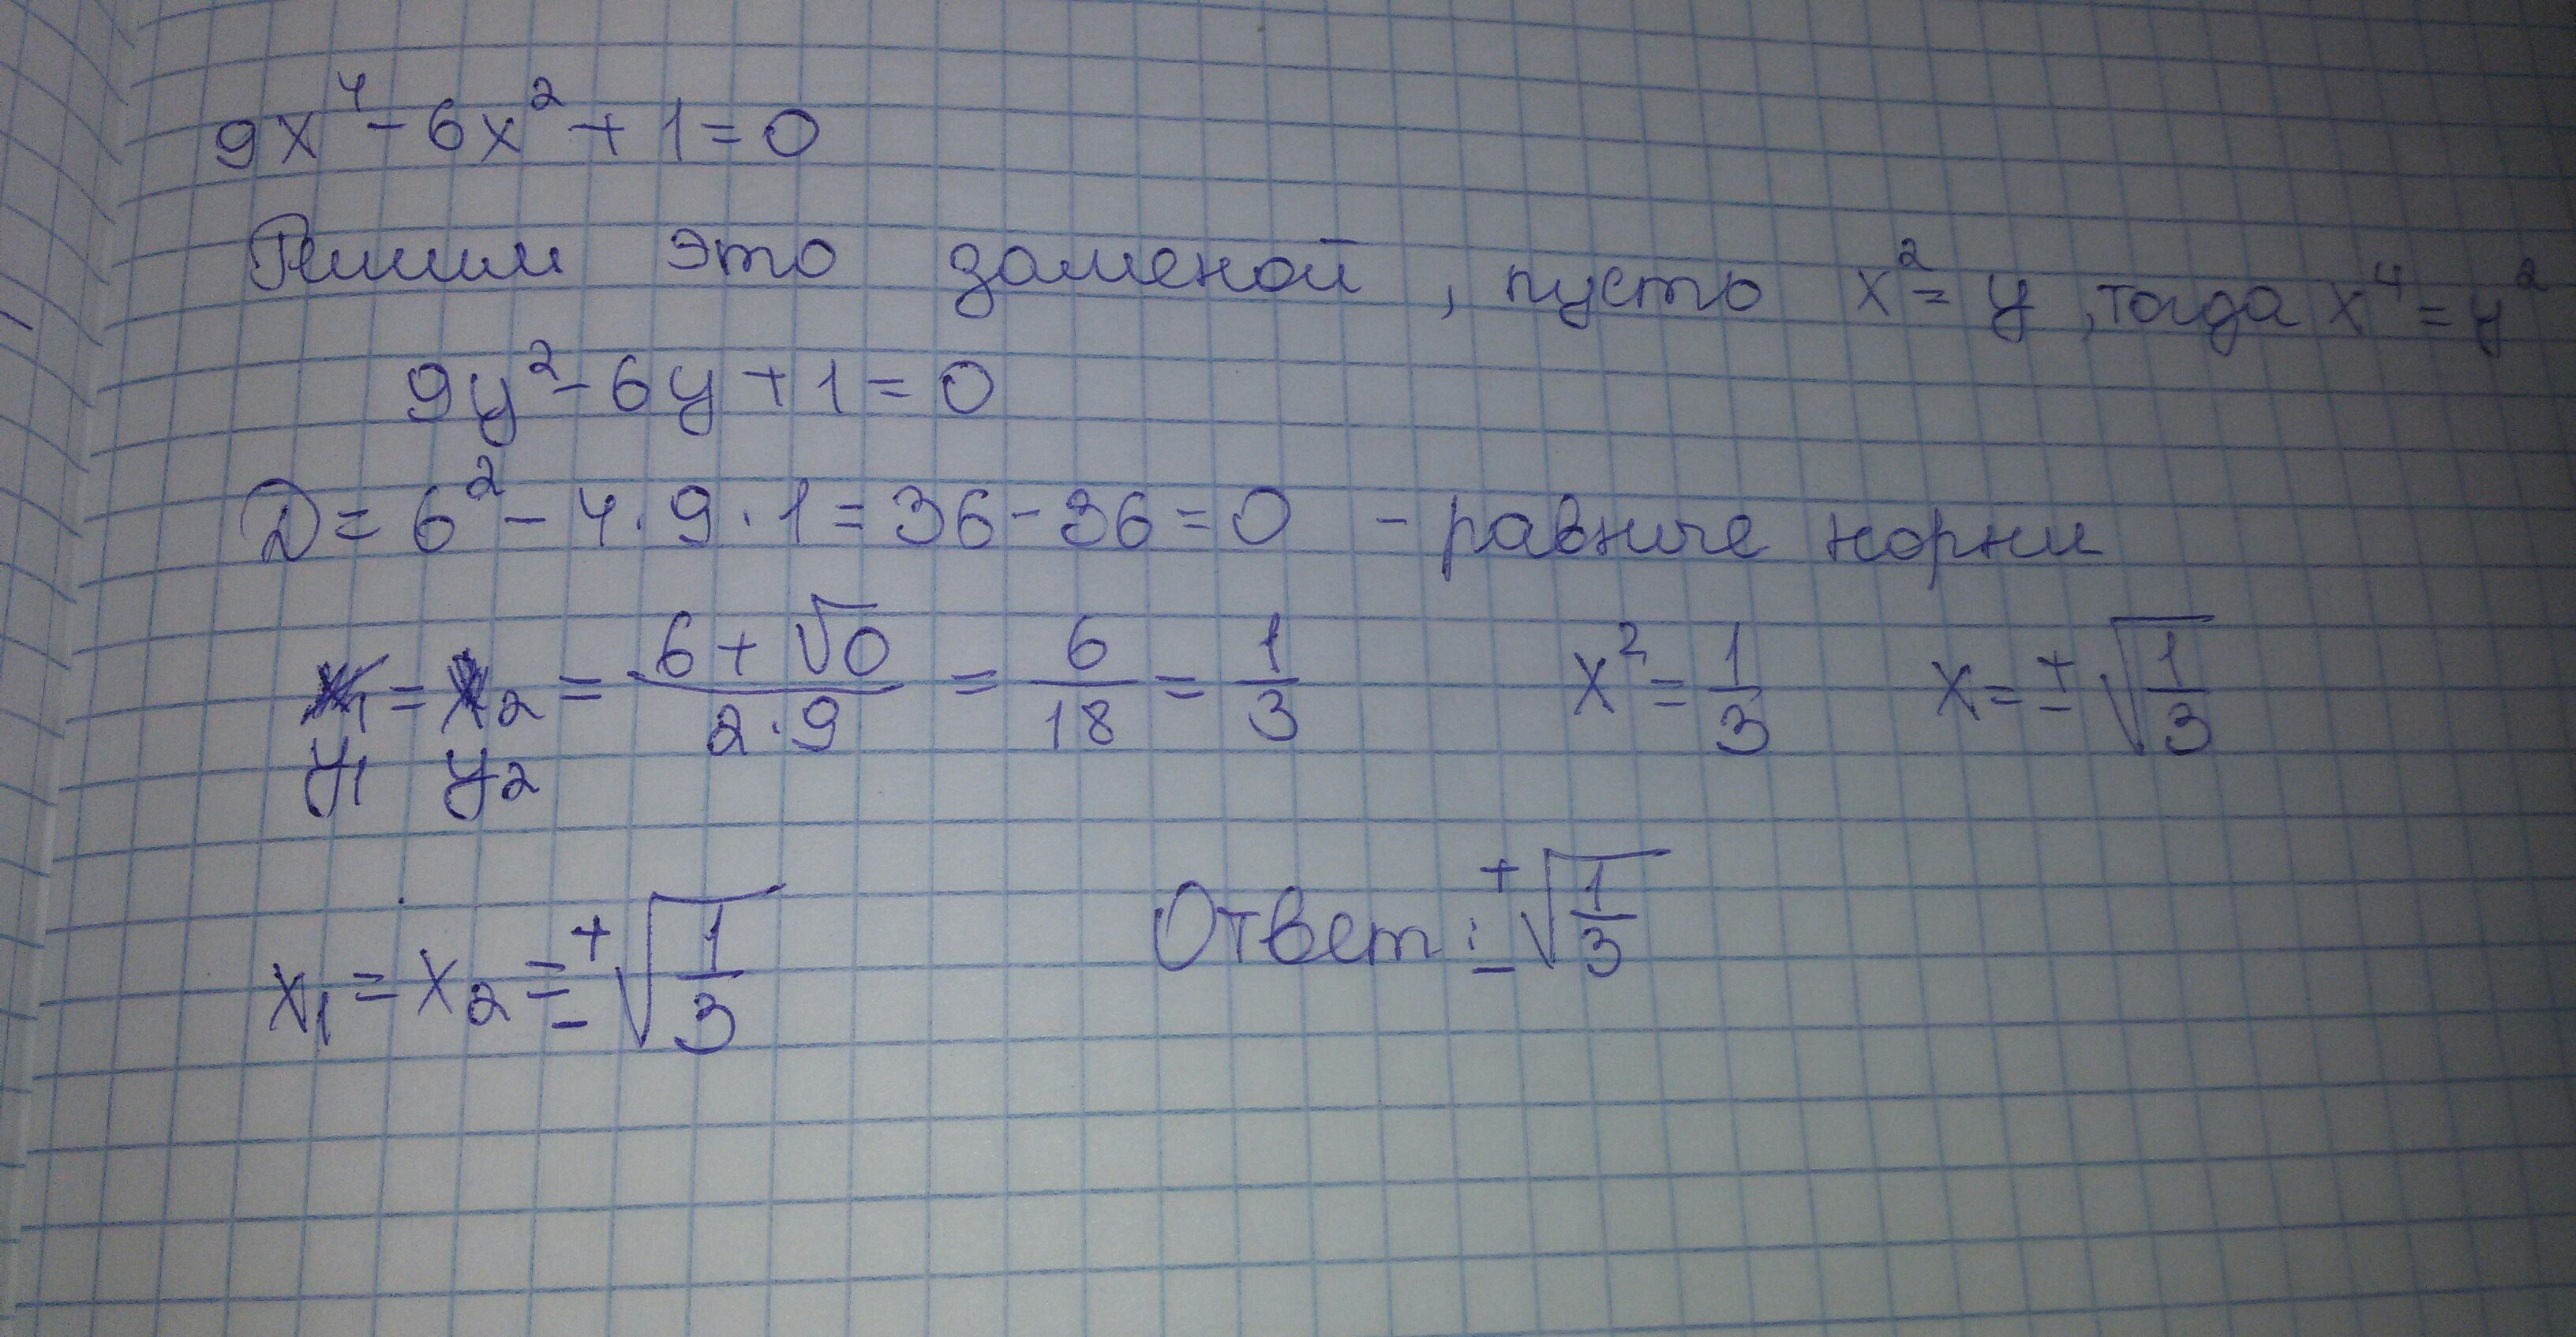 9x⁴ - 6x² + 1 = 0
Решим это заменой, пусть x² = y, тогда x⁴ = y²
9y² - 6y + 1 = 0
D = 6² - 4 · 9 · 1 = 36 - 36 = 0 - равные корни
x₁ = x₂ = (6 + √0)/(2 · 9) = 6/18 = 1/3 x² = 1/3 x = ± √(1/3)
y₁ y₂
x₁ = x₂ = ± √(1/3) Ответ: ± √(1/3)